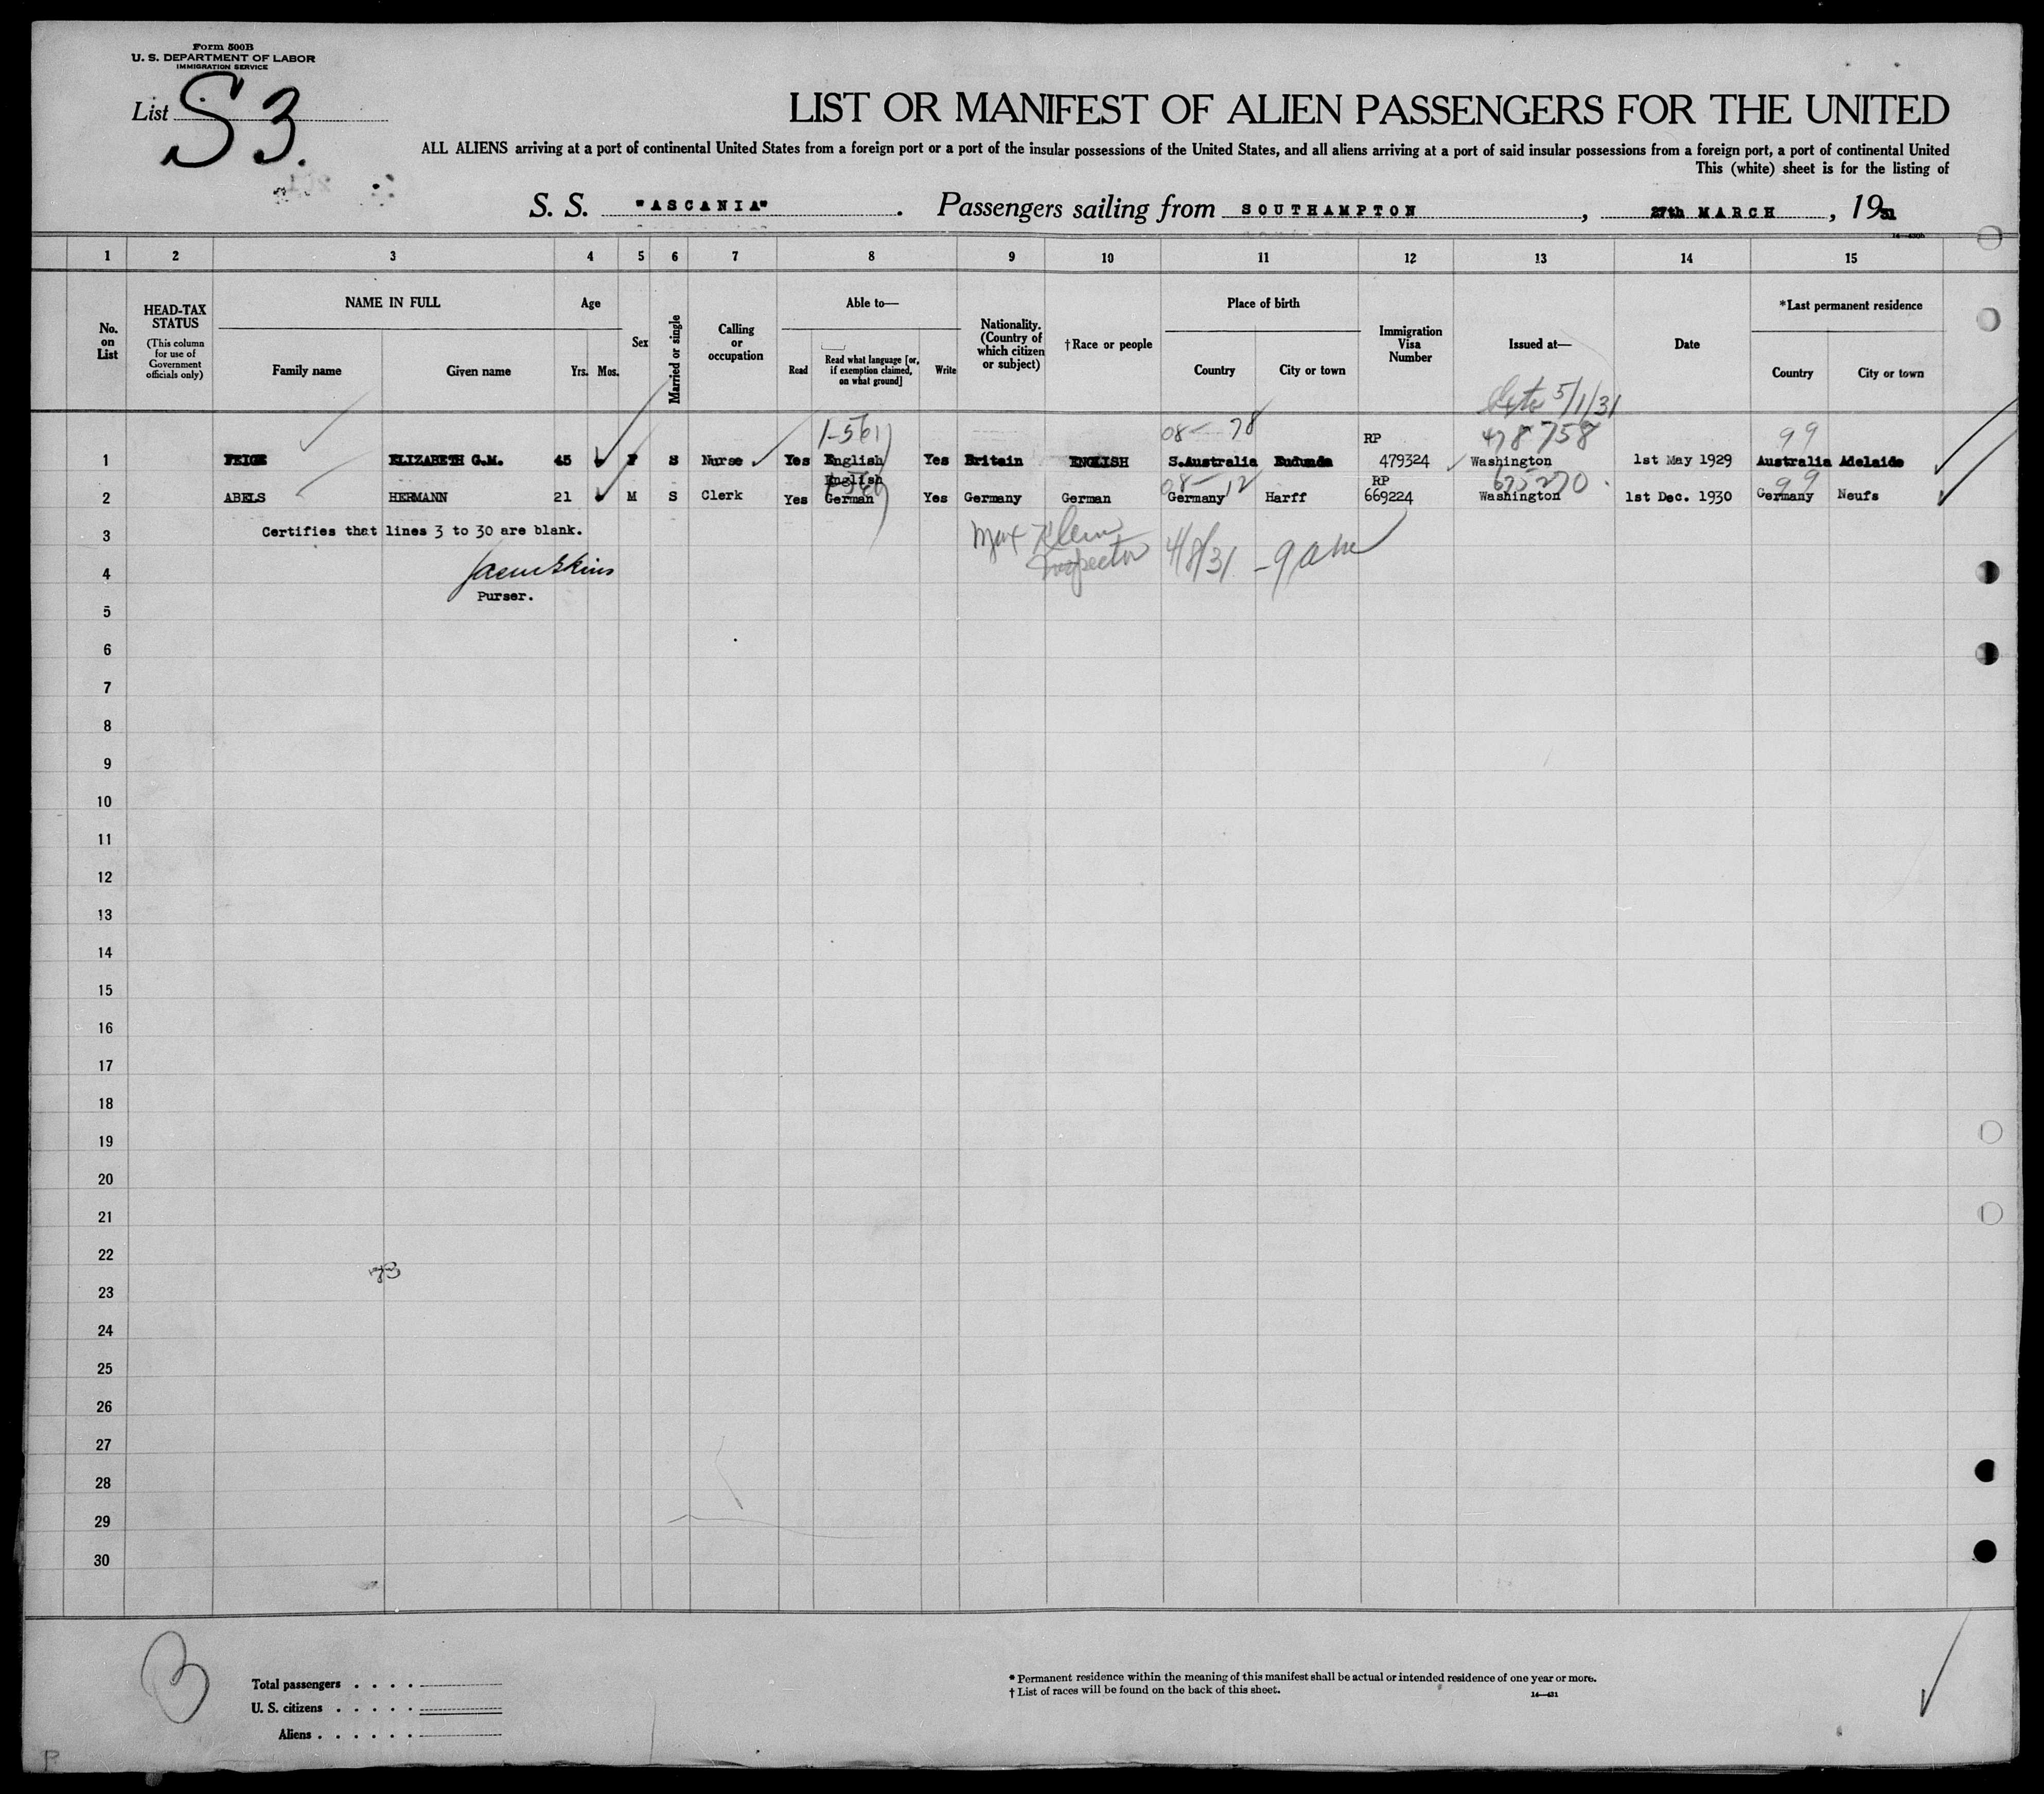 Form 500B
U. S. DEPARTMENT OF LABOR
IMMIGRATION SERVICE
List S3.
LIST OR MANIFEST OF ALIEN PASSENGERS FOR THE UNITED
ALL ALIENS arriving at a port of continental United States from a foreign port or a port of the insular possessions of the United States, and all aliens arriving at a port of said insular possessions from a foreign port, a port of continental United
This (white) sheet is for the listing of
S. S. "ASCANIA". Passengers sailing from SOUTHAMPTON, 27th MARCH, 1931
1 2 3 4 5 6 7 8 9 10 11 12 13 14 15
No. on List
HEAD-TAX STATUS
(This column for use of Government officials only)
NAME IN FULL
Family name Given name
Age
Yrs. Mos.
Sex
Married or single
Calling or occupation
Able to—
Read
Read what language [or, if exemption claimed, on what ground]
Write
Nationality. (Country of which citizen or subject)
†Race or people
Place of birth
Country City or town
Immigration Visa Number
Issued at—
Date
*Last permanent residence
Country City or town
5/1/31
1-561 08— 78 RP 478758 99
1 FEIGE ELIZABETH G.M. 45 F S Nurse Yes English Yes Britain ENGLISH S.Australia Eudunda 479324 Washington 1st May 1929 Australia Adelaide
English 08— 12 RP 675270 99
2 ABELS HERMANN 21 M S Clerk Yes German Yes Germany German Germany Harff 669224 Washington 1st Dec. 1930 Germany Neufs
3 Certifies that lines 3 to 30 are blank.
Max Klein
Inspector 4/8/31 - 9 am
4
Purser.
5
6
7
8
9
10
11
12
13
14
15
16
17
18
19
20
21
22
23
24
25
26
27
28
29
30
3
Total passengers . . . .
U. S. citizens . . . . .
Aliens . . . . . .
* Permanent residence within the meaning of this manifest shall be actual or intended residence of one year or more.
† List of races will be found on the back of this sheet.
14—431
P